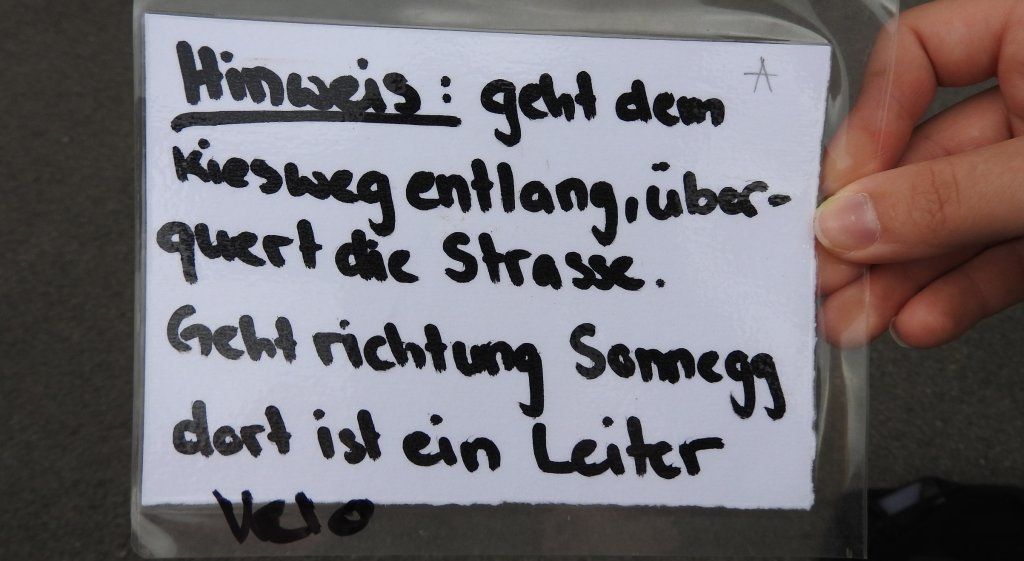 A
Hinweis: geht dem
Kiesweg entlang, über-
quert die Strasse.
Geht richtung Sonnegg
dort ist ein Leiter
Velo